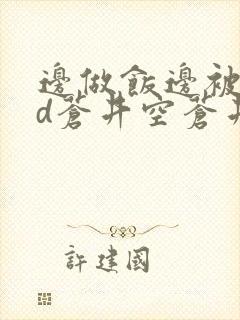 邊做飯邊被
d蒼井空蒼井
許建國